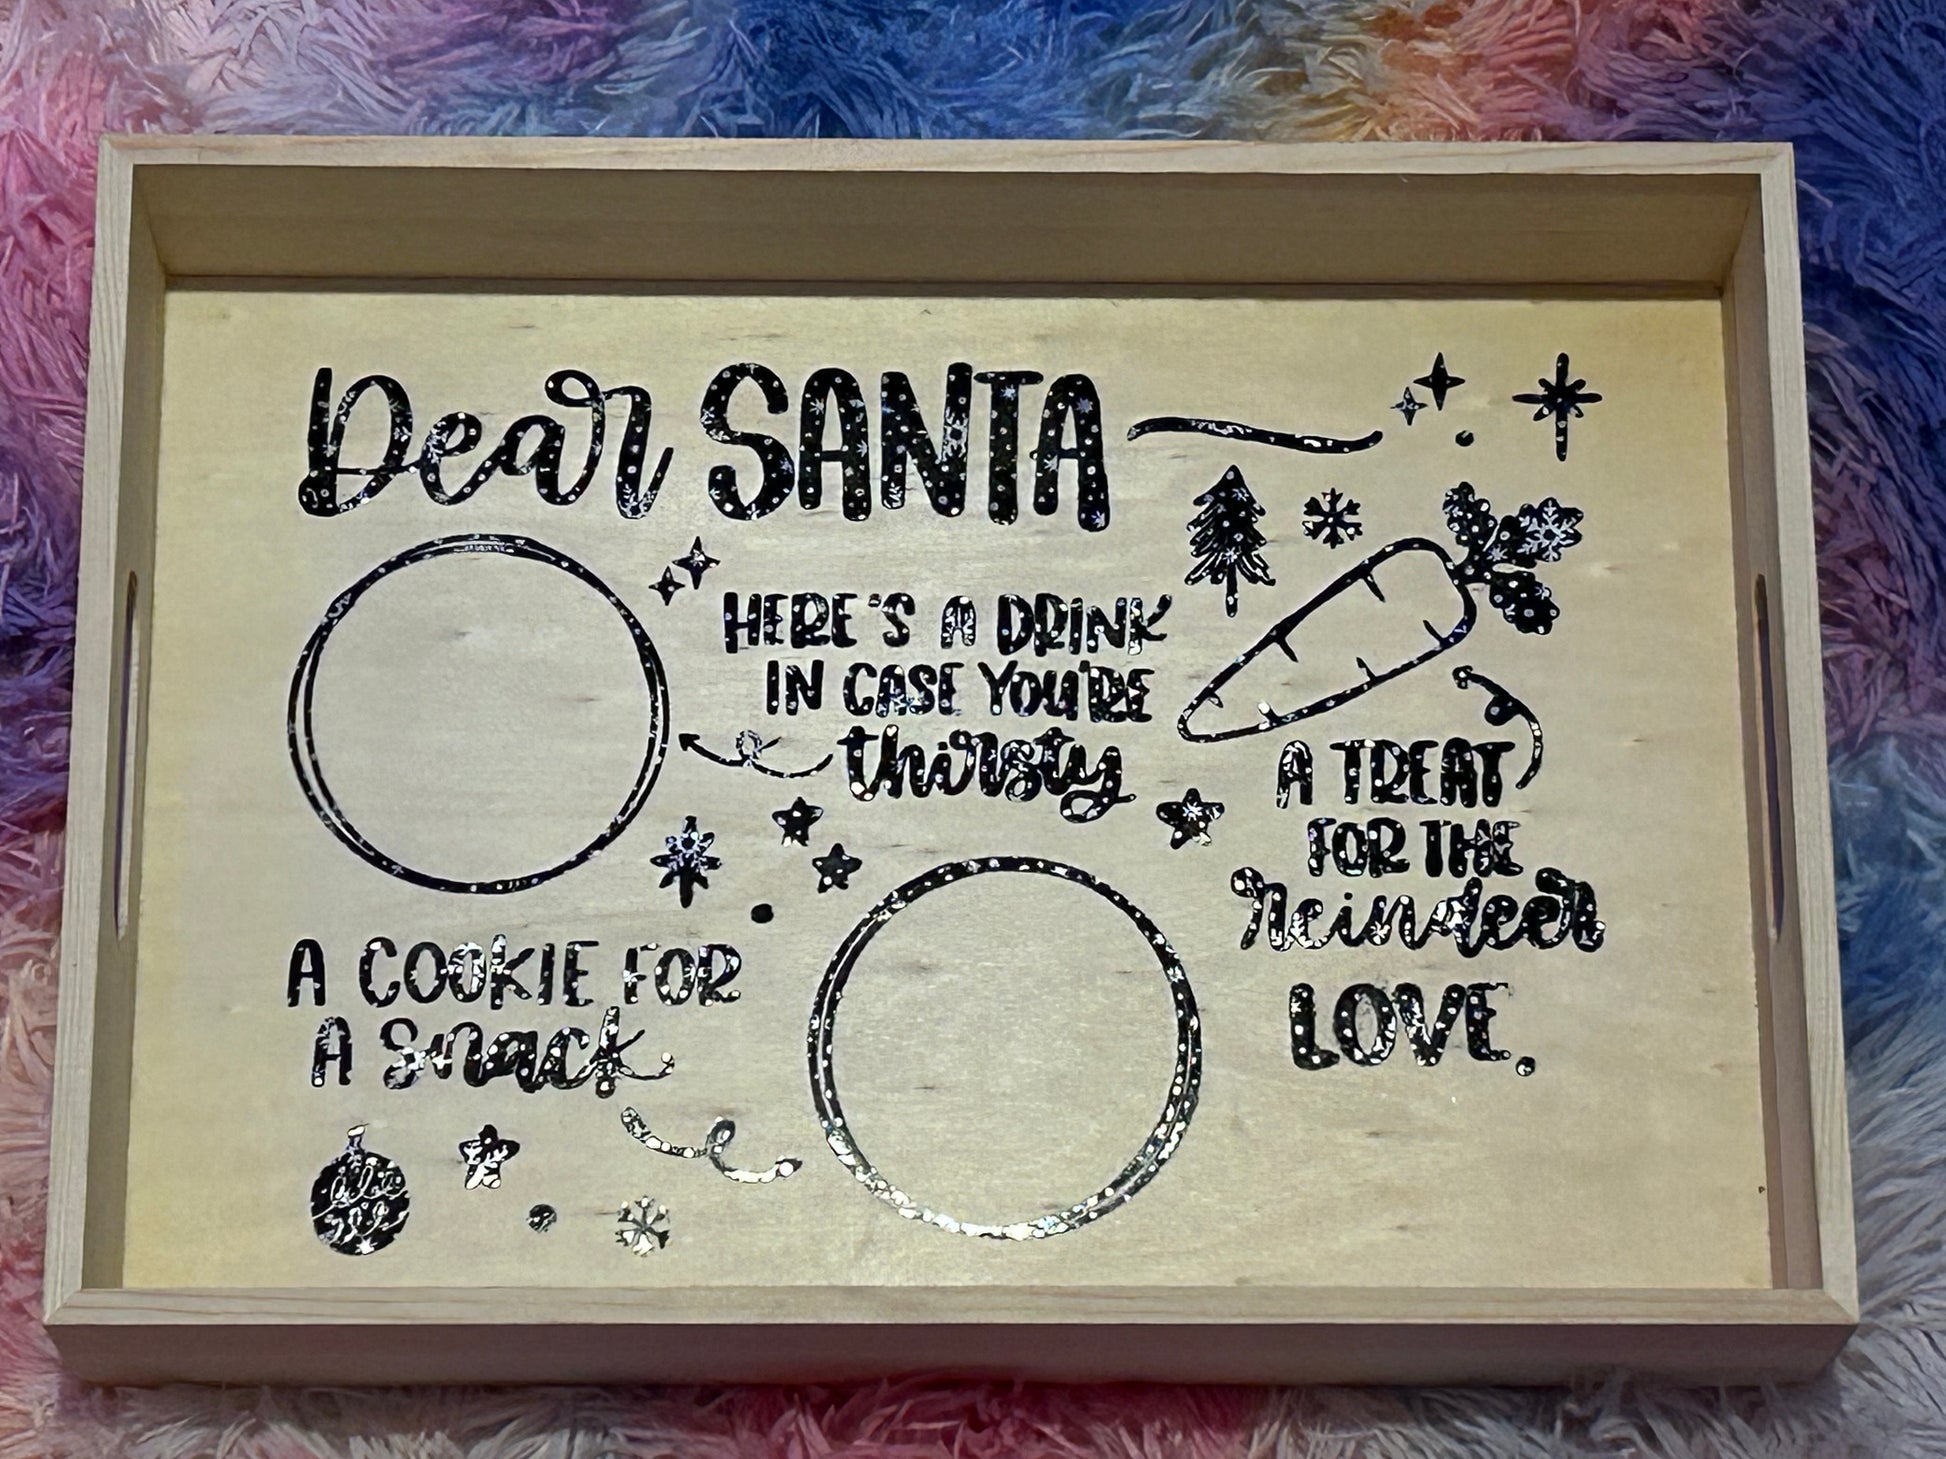 Dear SANTA
HERE'S A DRINK
IN CASE YOU'RE
thirsty
A TREAT
FOR THE
reindeer
A COOKIE FOR
A snack
LOVE.